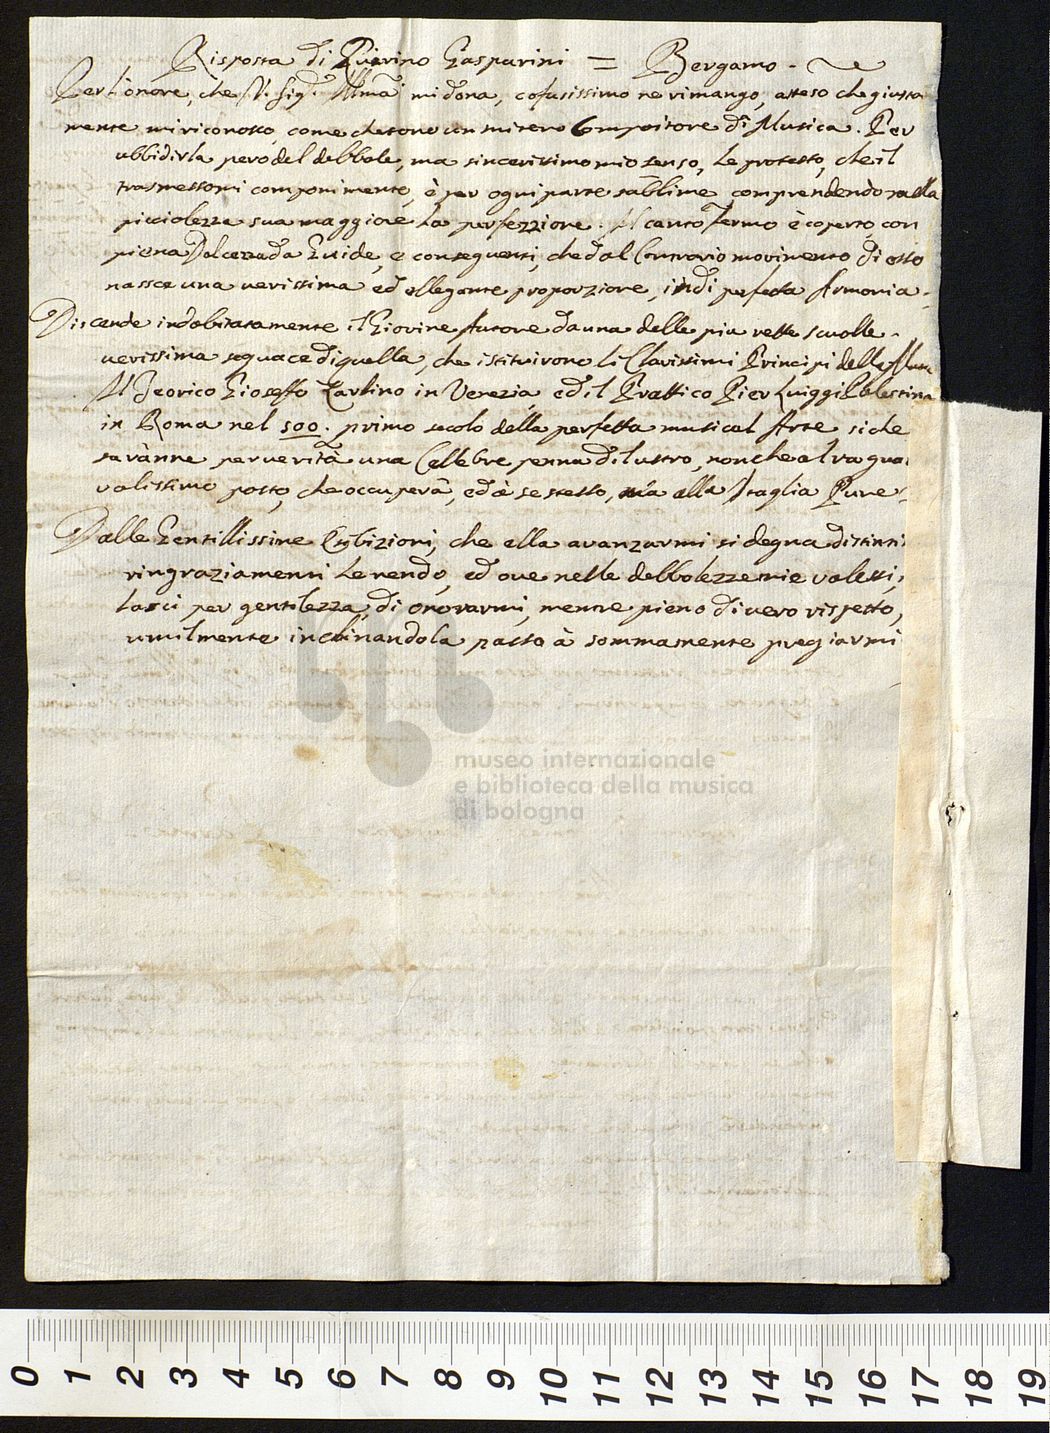 Risposta di Quirino Gasparini = Bergamo.
Per l'onore, che V. Sig.a Ill.ma mi dona, cofusissimo ne rimango, atteso che giusta
mente mi riconosco, come che sono un misero Compositore di Musica. Per
ubbidirla però del debbole, ma sincerissimo mio senso, Le protesto, che il
trasmessomi componimento, è per ogni parte sublime comprendendo nella
picciolezza sua maggiore La perfezzione. Il canto Fermo è coperto, con
piena Dolcezza da Guide, e conseguenti, che dal Contrario movimento di esso
nasce una verissima ed ellegante proporzione, indi perfetta Armonia.
Discende indobitatamente il Giovine Autore da una delle più rette scuolle.
verissima seguace di quella, che istituirono li Clarissimi Principi della
Il Teorico Gioseffo Zarlino in Venezia, ed il Prattico Pier Luiggi Palestrina
in Roma nel 500. primo secolo della perfetta musical Arte sì che
sarànne per verità una Cellebre penna di lustro, non che al
valissimo posto, che occuperà, ed à se stesso, mà alla Itaglia Pure
Dalle Gentillissime Esibizioni, che ella avanzarmi si degna distinti
ringraziamenti Le rendo, ed ove nelle debbolezze mie valessi,
Lasci per gentilezza di onorarmi, mentre pieno di vero rispetto,
umilmente inchinandola passo à sommamente pregiarmi
museo internazionale
e biblioteca della musica
di bologna
0 1 2 3 4 5 6 7 8 9 10 11 12 13 14 15 16 17 18 19